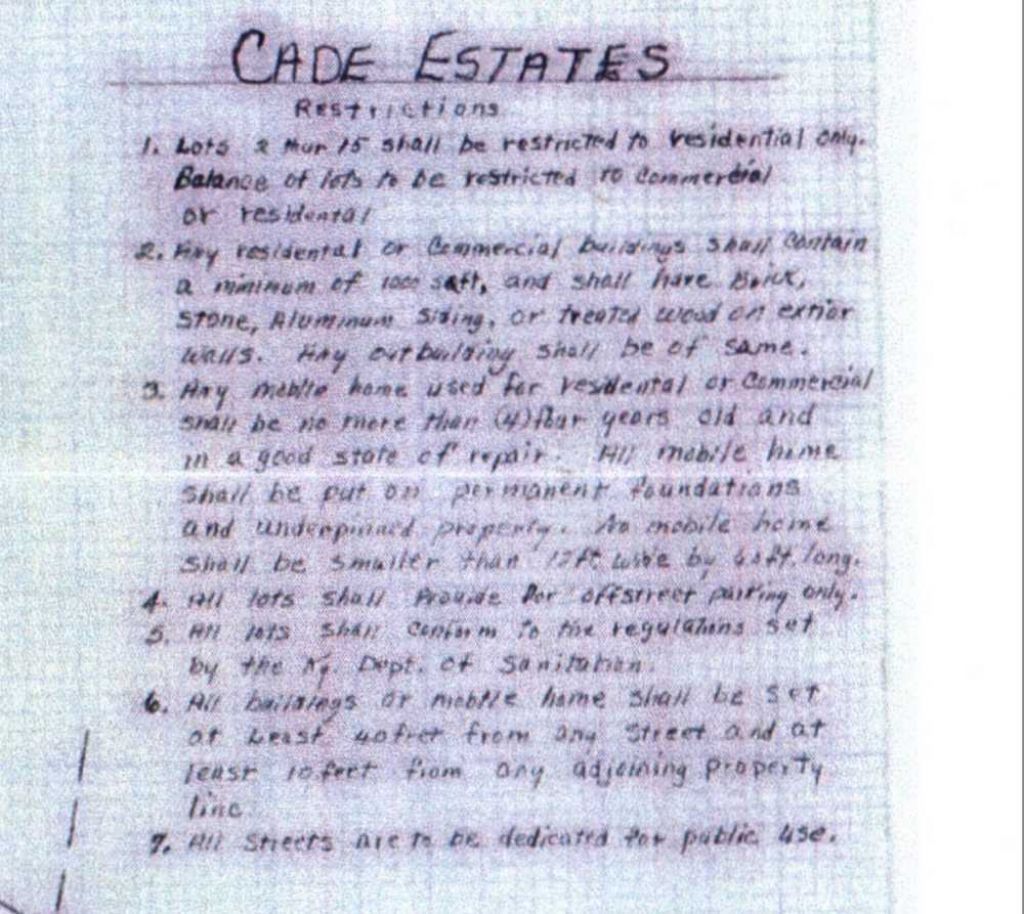 CADE ESTATES
Restrictions
1. Lots 2 thur 15 shall be restricted to residential only.
Balance of lots to be restricted to Commercial
or residental
2. Any residental or Commercial buildings shall Contain
a minimum of 1000 sqft, and shall have Brick,
Stone, Aluminum Siding, or treated wood on extior
walls. Any outbuilding shall be of same.
3. Any mobile home used for residental or Commercial
shall be no more than (4) four years old and
in a good state of repair. All mobile home
shall be put on permanent foundations
and underpinned property. No mobile home
shall be smaller than 12ft wide by long.
4. All lots shall Provide for offstreet parking only.
5. All lots shall Conform to the regulations set
by the Ky. Dept. of Sanitation.
6. All buildings or mobile home shall be set
at Least 40 feet from any Street and at
least 10 feet from any adjoining property
line
7. All Streets are to be dedicated for public use.